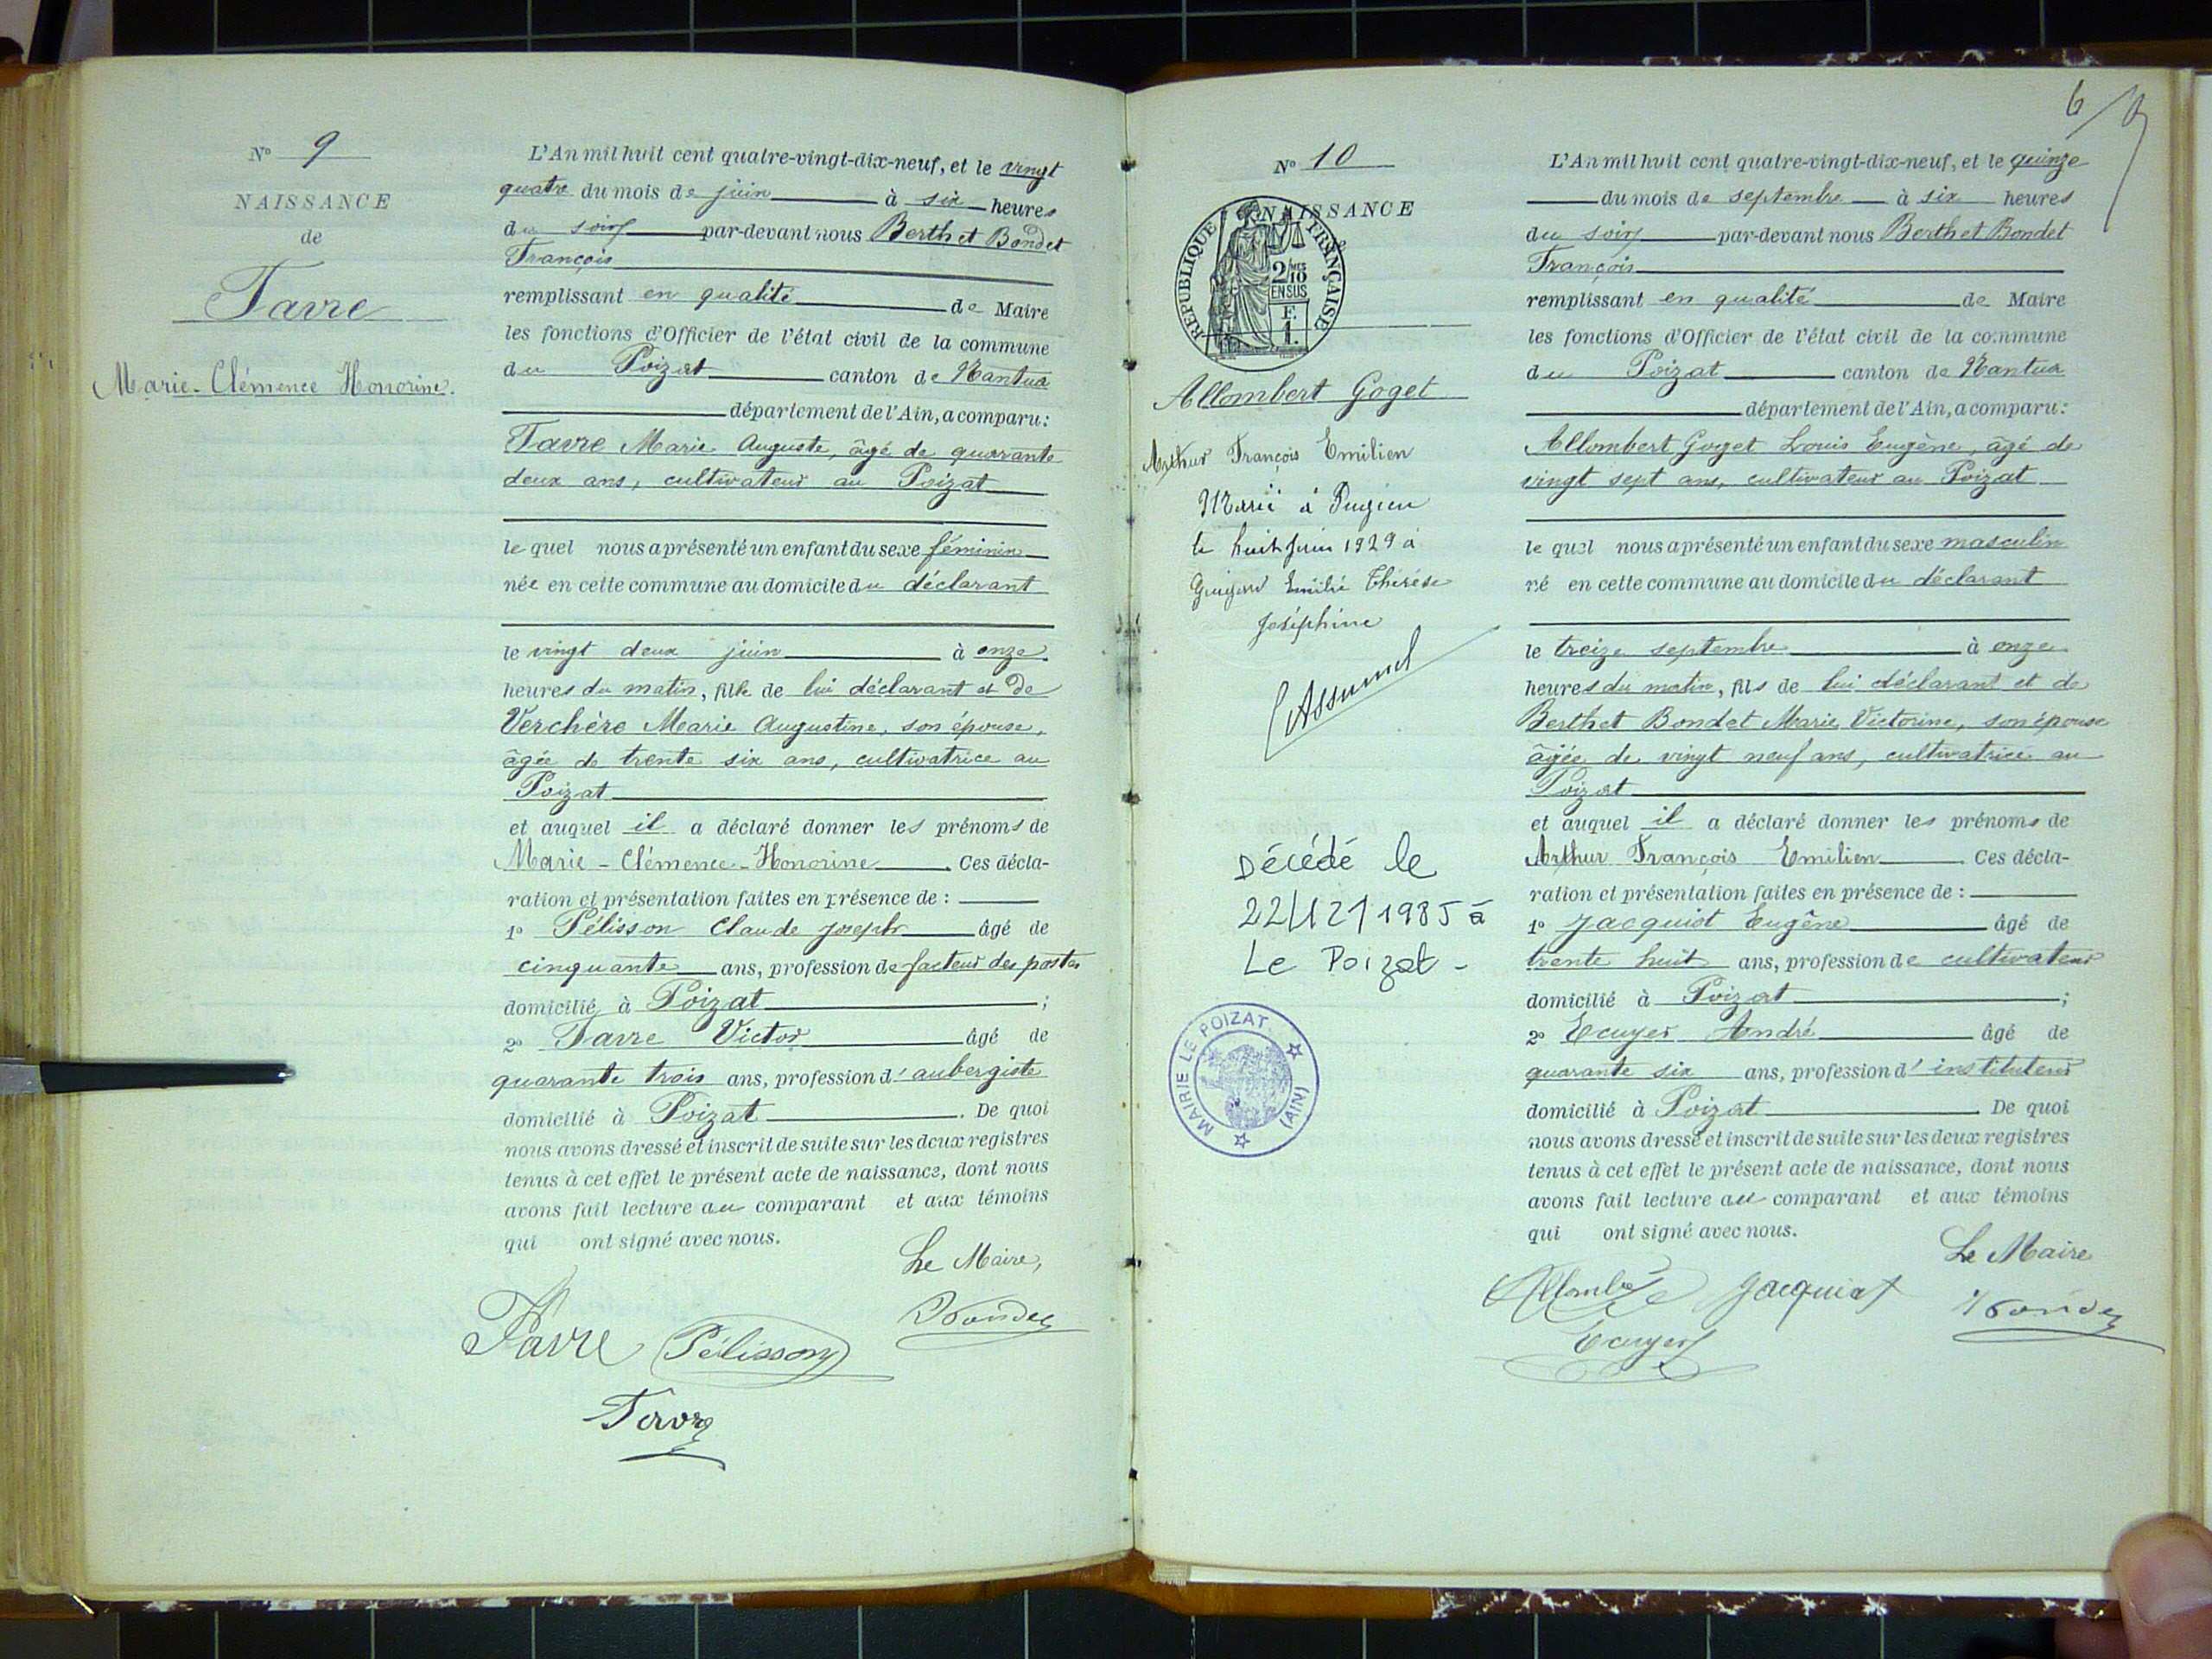 N° 9
NAISSANCE
de
Favre
Marie-Clémence Honorine.
L'An mil huit cent quatre-vingt-dix-neuf, et le vingt
quatre du mois de juin à six heures
du soir par-devant nous Berthet Bondet
François
remplissant en qualité de Maire
les fonctions d'Officier de l'état civil de la commune
du Poizat canton de Nantua
département de l'Ain, a comparu:
Favre Marie Auguste, âgé de quarante
deux ans, cultivateur au Poizat
le quel nous a présenté un enfant du sexe féminin
née en cette commune au domicile du déclarant
le vingt deux juin à onze
heures du matin, fille de lui déclarant et de
Verchère Marie Augustine, son épouse,
âgée de trente six ans, cultivatrice au
Poizat
et auquel il a déclaré donner les prénoms de
Marie-Clémence-Honorine. Ces décla-
ration et présentation faites en présence de :
1° Pélisson Claude Joseph âgé de
cinquante ans, profession de facteur des postes
domicilié à Poizat ;
2° Favre Victor âgé de
quarante trois ans, profession d'aubergiste
domicilié à Poizat. De quoi
nous avons dressé et inscrit de suite sur les deux registres
tenus à cet effet le présent acte de naissance, dont nous
avons fait lecture au comparant et aux témoins
qui ont signé avec nous.
Le Maire,
Favre Pélisson Bondet
Favre
6
N° 10
NAISSANCE
REPUBLIQUE FRANÇAISE
2/10 MES
EN SUS
F.
1.
Allombert Goget
Arthur François Emilien
Marié à Pugieu
le huit Juin 1929 à
Emilie Thérèse
Joséphine
Décédé le
22/12/1985 à
Le Poizat -
MAIRIE LE POIZAT (AIN)
L'An mil huit cent quatre-vingt-dix-neuf, et le quinze
du mois de septembre à six heures
du soir par-devant nous Berthet Bondet
François
remplissant en qualité de Maire
les fonctions d'Officier de l'état civil de la commune
du Poizat canton de Nantua
département de l'Ain, a comparu:
Allombert Goget Louis Eugène, âgé de
vingt sept ans, cultivateur au Poizat
le quel nous a présenté un enfant du sexe masculin
né en cette commune au domicile du déclarant
le treize septembre à onze
heures du matin, fils de lui déclarant et de
Berthet Bondet Marie Victorine, son épouse
âgée de vingt neuf ans, cultivatrice au
Poizat
et auquel il a déclaré donner les prénoms de
Arthur François Emilien. Ces décla-
ration et présentation faites en présence de :
1° Jacquiot Eugène âgé de
trente huit ans, profession de cultivateur
domicilié à Poizat ;
2° Ecuyer André âgé de
quarante six ans, profession d'instituteur
domicilié à Poizat De quoi
nous avons dressé et inscrit de suite sur les deux registres
tenus à cet effet le présent acte de naissance, dont nous
avons fait lecture au comparant et aux témoins
qui ont signé avec nous.
Le Maire
Jacquiot Bondet
Ecuyer